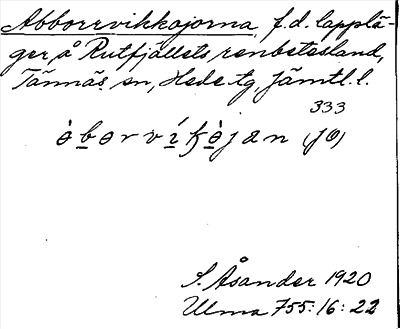 Abborrvikkojorna, f.d. lapplä-
ger å Rutfjällets renbetesland,
Tännäs sn, Hede tg, Jämtl. l.
333
(JO)
S. Åsander 1920
Ulma 755:16:22